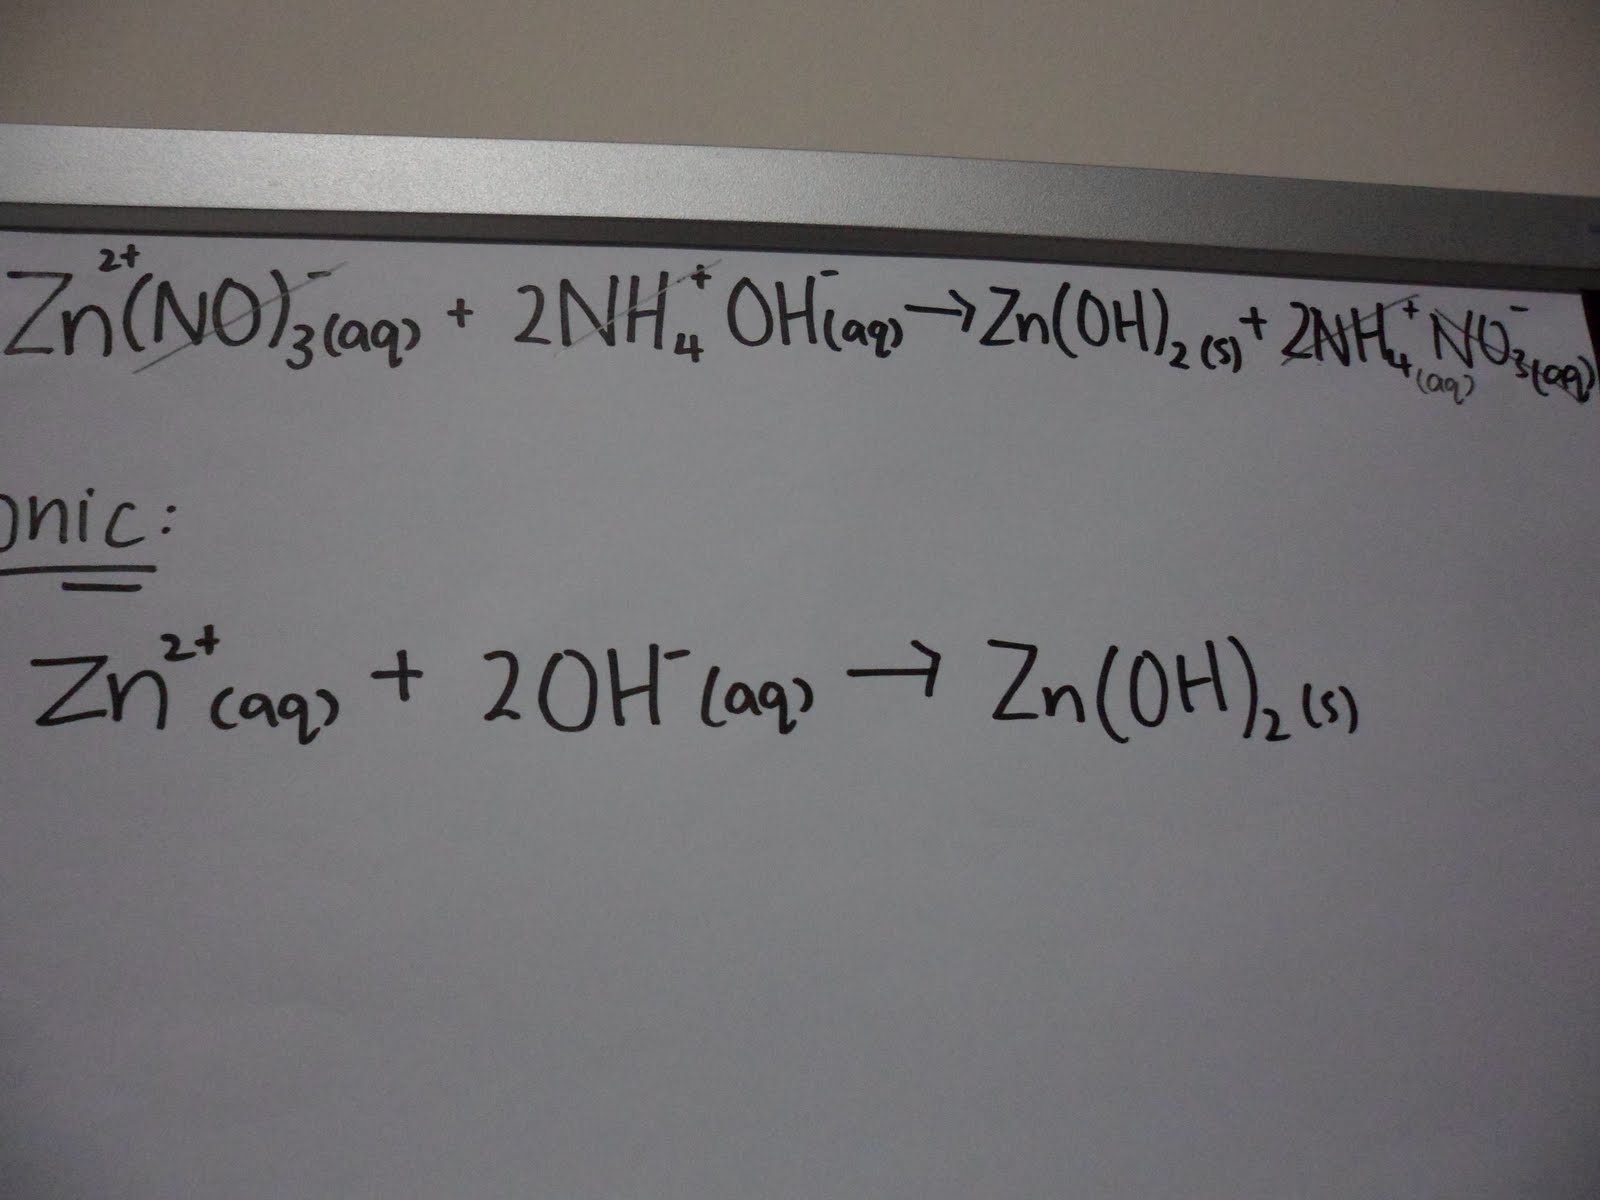 Zn²⁺(NO)₃⁻(aq) + 2NH₄⁺OH⁻(aq) → Zn(OH)₂(s) + 2NH₄⁺(aq)NO₃⁻(aq)
onic:
Zn²⁺(aq) + 2OH⁻(aq) → Zn(OH)₂(s)